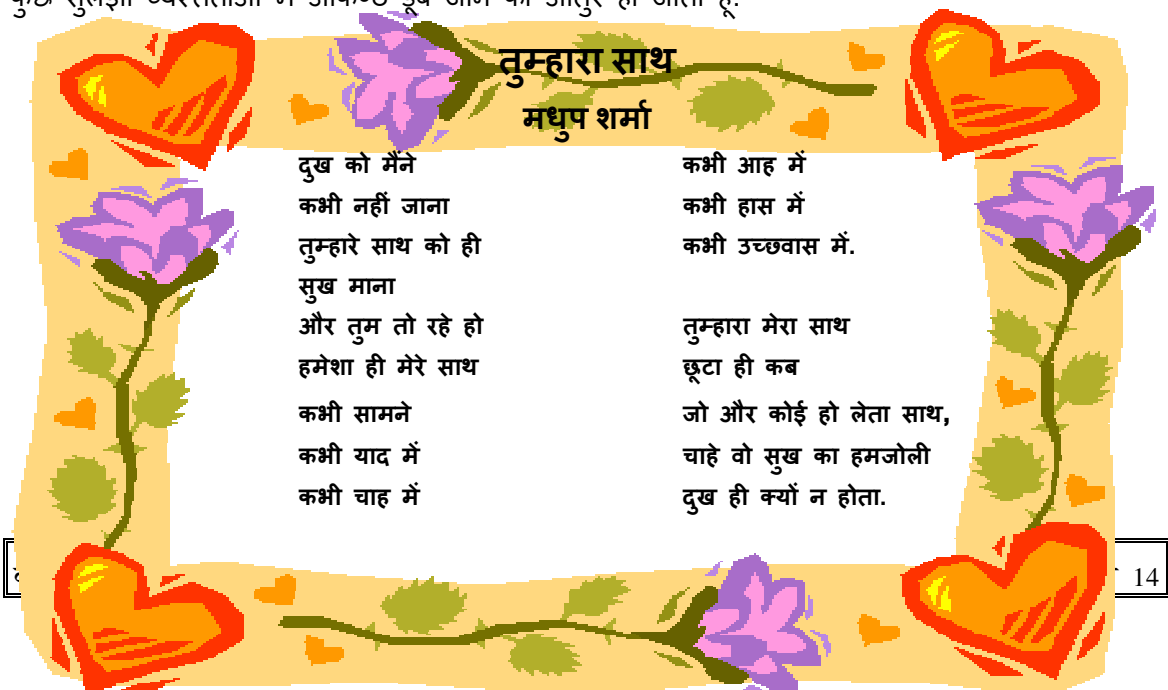 तुम्हारा साथ
मधुप शर्मा
दुख को मैंने
कभी नहीं जाना
तुम्हारे साथ को ही
सुख माना
और तुम तो रहे हो
हमेशा ही मेरे साथ
कभी सामने
कभी याद में
कभी चाह में
कभी आह में
कभी हास में
कभी उच्छवास में.
तुम्हारा मेरा साथ
छूटा ही कब
जो और कोई हो लेता साथ,
चाहे वो सुख का हमजोली
दुख ही क्यों न होता.
14